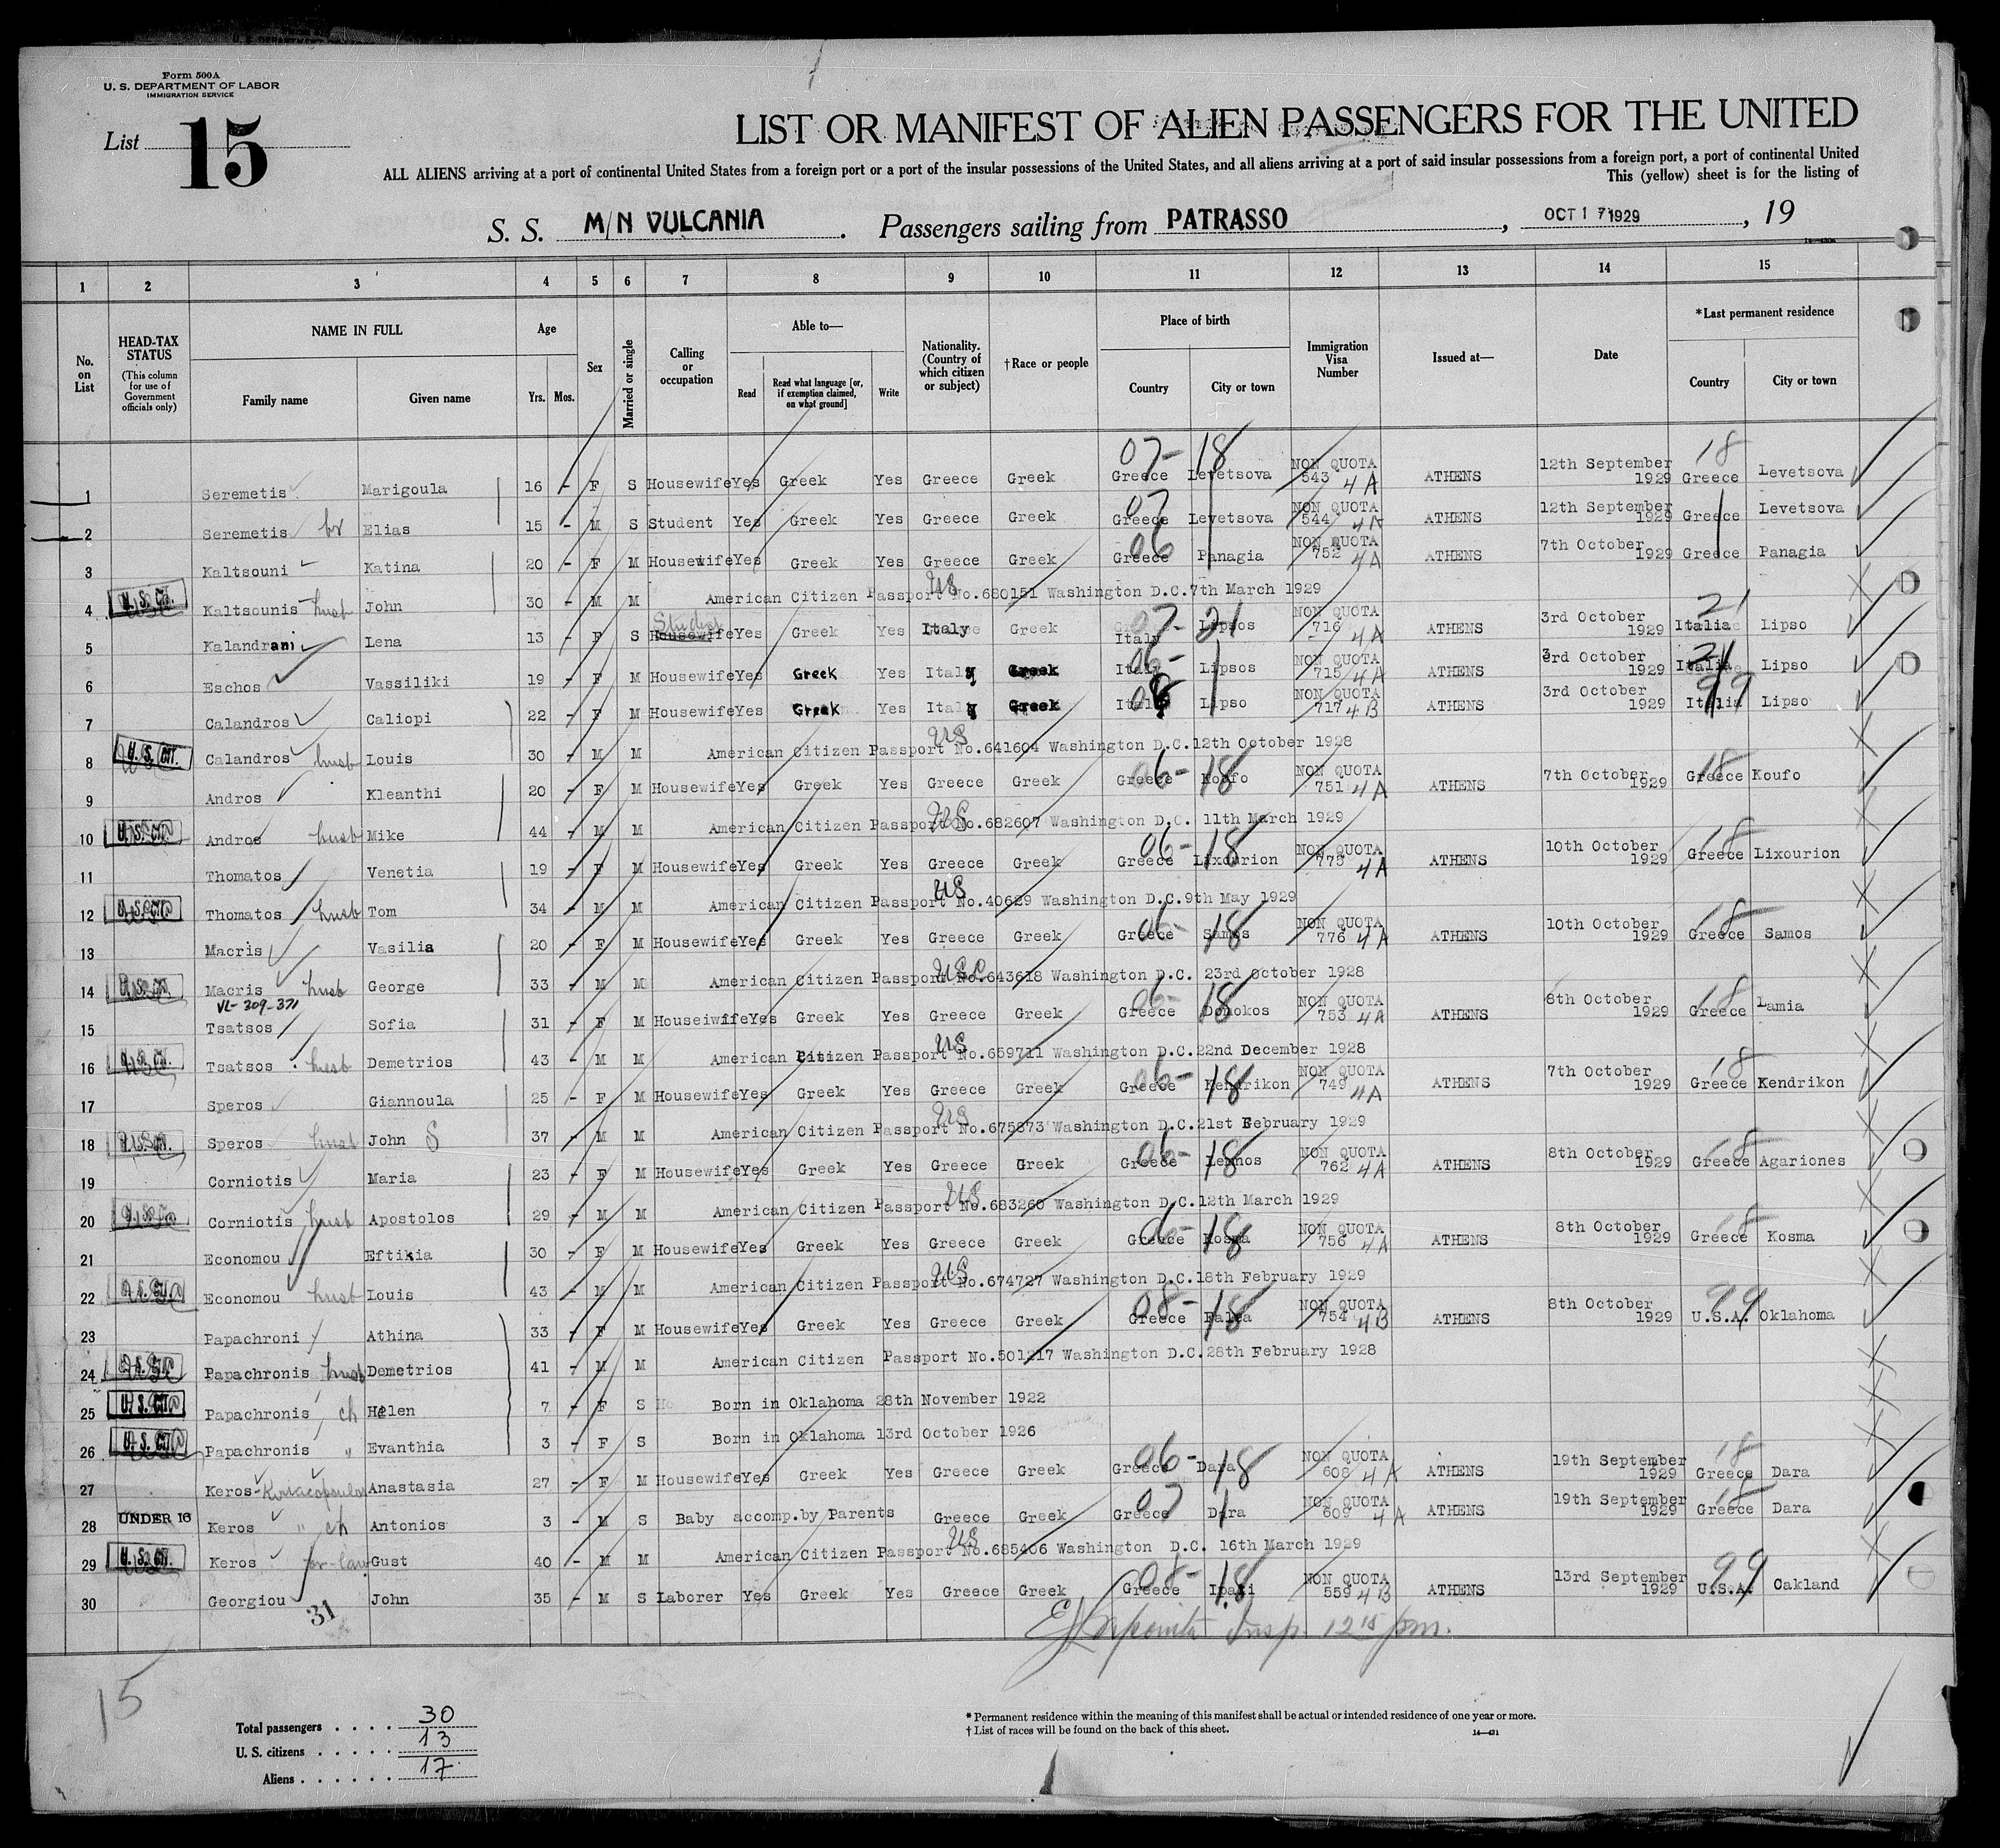 Form 500A
U. S. DEPARTMENT OF LABOR
IMMIGRATION SERVICE
List 15
LIST OR MANIFEST OF ALIEN PASSENGERS FOR THE UNITED
ALL ALIENS arriving at a port of continental United States from a foreign port or a port of the insular possessions of the United States, and all aliens arriving at a port of said insular possessions from a foreign port, a port of continental United
This (yellow) sheet is for the listing of
S. S. M/N VULCANIA. Passengers sailing from PATRASSO, OCT 17 1929, 19
1 2 3 4 5 6 7 8 9 10 11 12 13 14 15
No. on List
HEAD-TAX STATUS (This column for use of Government officials only)
NAME IN FULL
Family name Given name
Age
Yrs. Mos.
Sex
Married or single
Calling or occupation
Able to—
Read Read what language [or, if exemption claimed, on what ground] Write
Nationality. (Country of which citizen or subject)
†Race or people
Place of birth
Country City or town
Immigration Visa Number
Issued at—
Date
*Last permanent residence
Country City or town
1 Seremetis Marigoula 16 - F S Housewife Yes Greek Yes Greece Greek 07-18 Greece Levetsova NON QUOTA 543 4A ATHENS 12th September 1929 18 Greece Levetsova
2 Seremetis br Elias 15 - M S Student Yes Greek Yes Greece Greek 07 Greece Levetsova NON QUOTA 544 4A ATHENS 12th September 1929 Greece Levetsova
3 Kaltsouni Katina 20 - F M Housewife Yes Greek Yes Greece Greek 06 Greece Panagia NON QUOTA 752 4A ATHENS 7th October 1929 Greece Panagia
4 U. S. CIT. Kaltsounis husb John 30 - M M American Citizen Passport No.680151 Washington D.C.7th March 1929 US
5 Kalandrani Lena 13 - F S Housewife Student Yes Greek Yes Italy Greek 07-21 Italy Lipsos NON QUOTA 716 4A ATHENS 3rd October 1929 21 Italia Lipso
6 Eschos Vassiliki 19 - F M Housewife Yes Greek Yes Italy Greek 06- Italy Lipsos NON QUOTA 715 4A ATHENS 3rd October 1929 21 Italia Lipso
7 Calandros Caliopi 22 - F M Housewife Yes Greek Yes Italy Greek 08 Italy Lipso NON QUOTA 717 4B ATHENS 3rd October 1929 99 Italia Lipso
8 U. S. CIT. Calandros husb Louis 30 - M M American Citizen Passport No.641604 Washington D.C.12th October 1928 US
9 Andros Kleanthi 20 - F M Housewife Yes Greek Yes Greece Greek 06-18 Greece Koufo NON QUOTA 751 4A ATHENS 7th October 1929 18 Greece Koufo
10 U. S. CIT. Andros husb Mike 44 - M M American Citizen Passport No.682607 Washington D.C. 11th March 1929 US
11 Thomatos Venetia 19 - F M Housewife Yes Greek Yes Greece Greek 06-18 Greece Lixourion NON QUOTA 775 4A ATHENS 10th October 1929 18 Greece Lixourion
12 U. S. CIT. Thomatos husb Tom 34 - M M American Citizen Passport No.40629 Washington D.C.9th May 1929 US
13 Macris Vasilia 20 - F M Housewife Yes Greek Yes Greece Greek 06-18 Greece Samos NON QUOTA 776 4A ATHENS 10th October 1929 18 Greece Samos
14 U. S. CIT. Macris husb George 33 - M M American Citizen Passport No.643618 Washington D.C. 23rd October 1928 USC
VL-309-371
15 Tsatsos Sofia 31 - F M Houseiwife Yes Greek Yes Greece Greek 06-18 Greece Domokos NON QUOTA 753 4A ATHENS 8th October 1929 18 Greece Lamia
16 U. S. CIT. Tsatsos husb Demetrios 43 - M M American Citizen Passport No.659711 Washington D.C.22nd December 1928 US
17 Speros Giannoula 25 - F M Housewife Yes Greek Yes Greece Greek 06-18 Greece Kendrikon NON QUOTA 749 4A ATHENS 7th October 1929 18 Greece Kendrikon
18 U. S. CIT. Speros husb John S 37 - M M American Citizen Passport No.675873 Washington D.C.21st February 1929 US
19 Corniotis Maria 23 - F M Housewife Yes Greek Yes Greece Greek 06-18 Greece Lemnos NON QUOTA 762 4A ATHENS 8th October 1929 18 Greece Agariones
20 U. S. CIT. Corniotis husb Apostolos 29 - M M American Citizen Passport No.683260 Washington D.C.12th March 1929 US
21 Economou Eftikia 30 - F M Housewife Yes Greek Yes Greece Greek 06-18 Greece Kosma NON QUOTA 756 4A ATHENS 8th October 1929 18 Greece Kosma
22 U. S. CIT. Economou husb Louis 43 - M M American Citizen Passport No.674727 Washington D.C.18th February 1929 US
23 Papachroni Athina 33 - F M Housewife Yes Greek Yes Greece Greek 08-18 Greece NON QUOTA 754 4B ATHENS 8th October 1929 99 U.S.A. Oklahoma
24 U. S. CIT. Papachronis husb Demetrios 41 - M M American Citizen Passport No.501217 Washington D.C.28th February 1928
25 U. S. CIT. Papachronis ch Helen 7 - F S Born in Oklahoma 28th November 1922
26 U. S. CIT. Papachronis " Evanthia 3 - F S Born in Oklahoma 13rd October 1926
27 Keros-Kiriacopoulos Anastasia 27 - F M Housewife Yes Greek Yes Greece Greek 06-18 Greece Dara NON QUOTA 608 4A ATHENS 19th September 1929 18 Greece Dara
28 UNDER 16 Keros " ch Antonios 3 - M S Baby accomp.by Parents Greece Greek 07 Greece Dara NON QUOTA 609 4A ATHENS 19th September 1929 18 Greece Dara
29 U. S. CIT. Keros Gust 40 - M M American Citizen Passport No.685406 Washington D.C. 16th March 1929 US
30 Georgiou John 35 - M S Laborer Yes Greek Yes Greece Greek 08-18 Greece NON QUOTA 559 4B ATHENS 13rd September 1929 99 U.S.A. Oakland
31
Insp. 12 15 pm.
15
Total passengers . . . . 30
U. S. citizens . . . . . 13
Aliens . . . . . . 17
* Permanent residence within the meaning of this manifest shall be actual or intended residence of one year or more.
† List of races will be found on the back of this sheet.
14—431